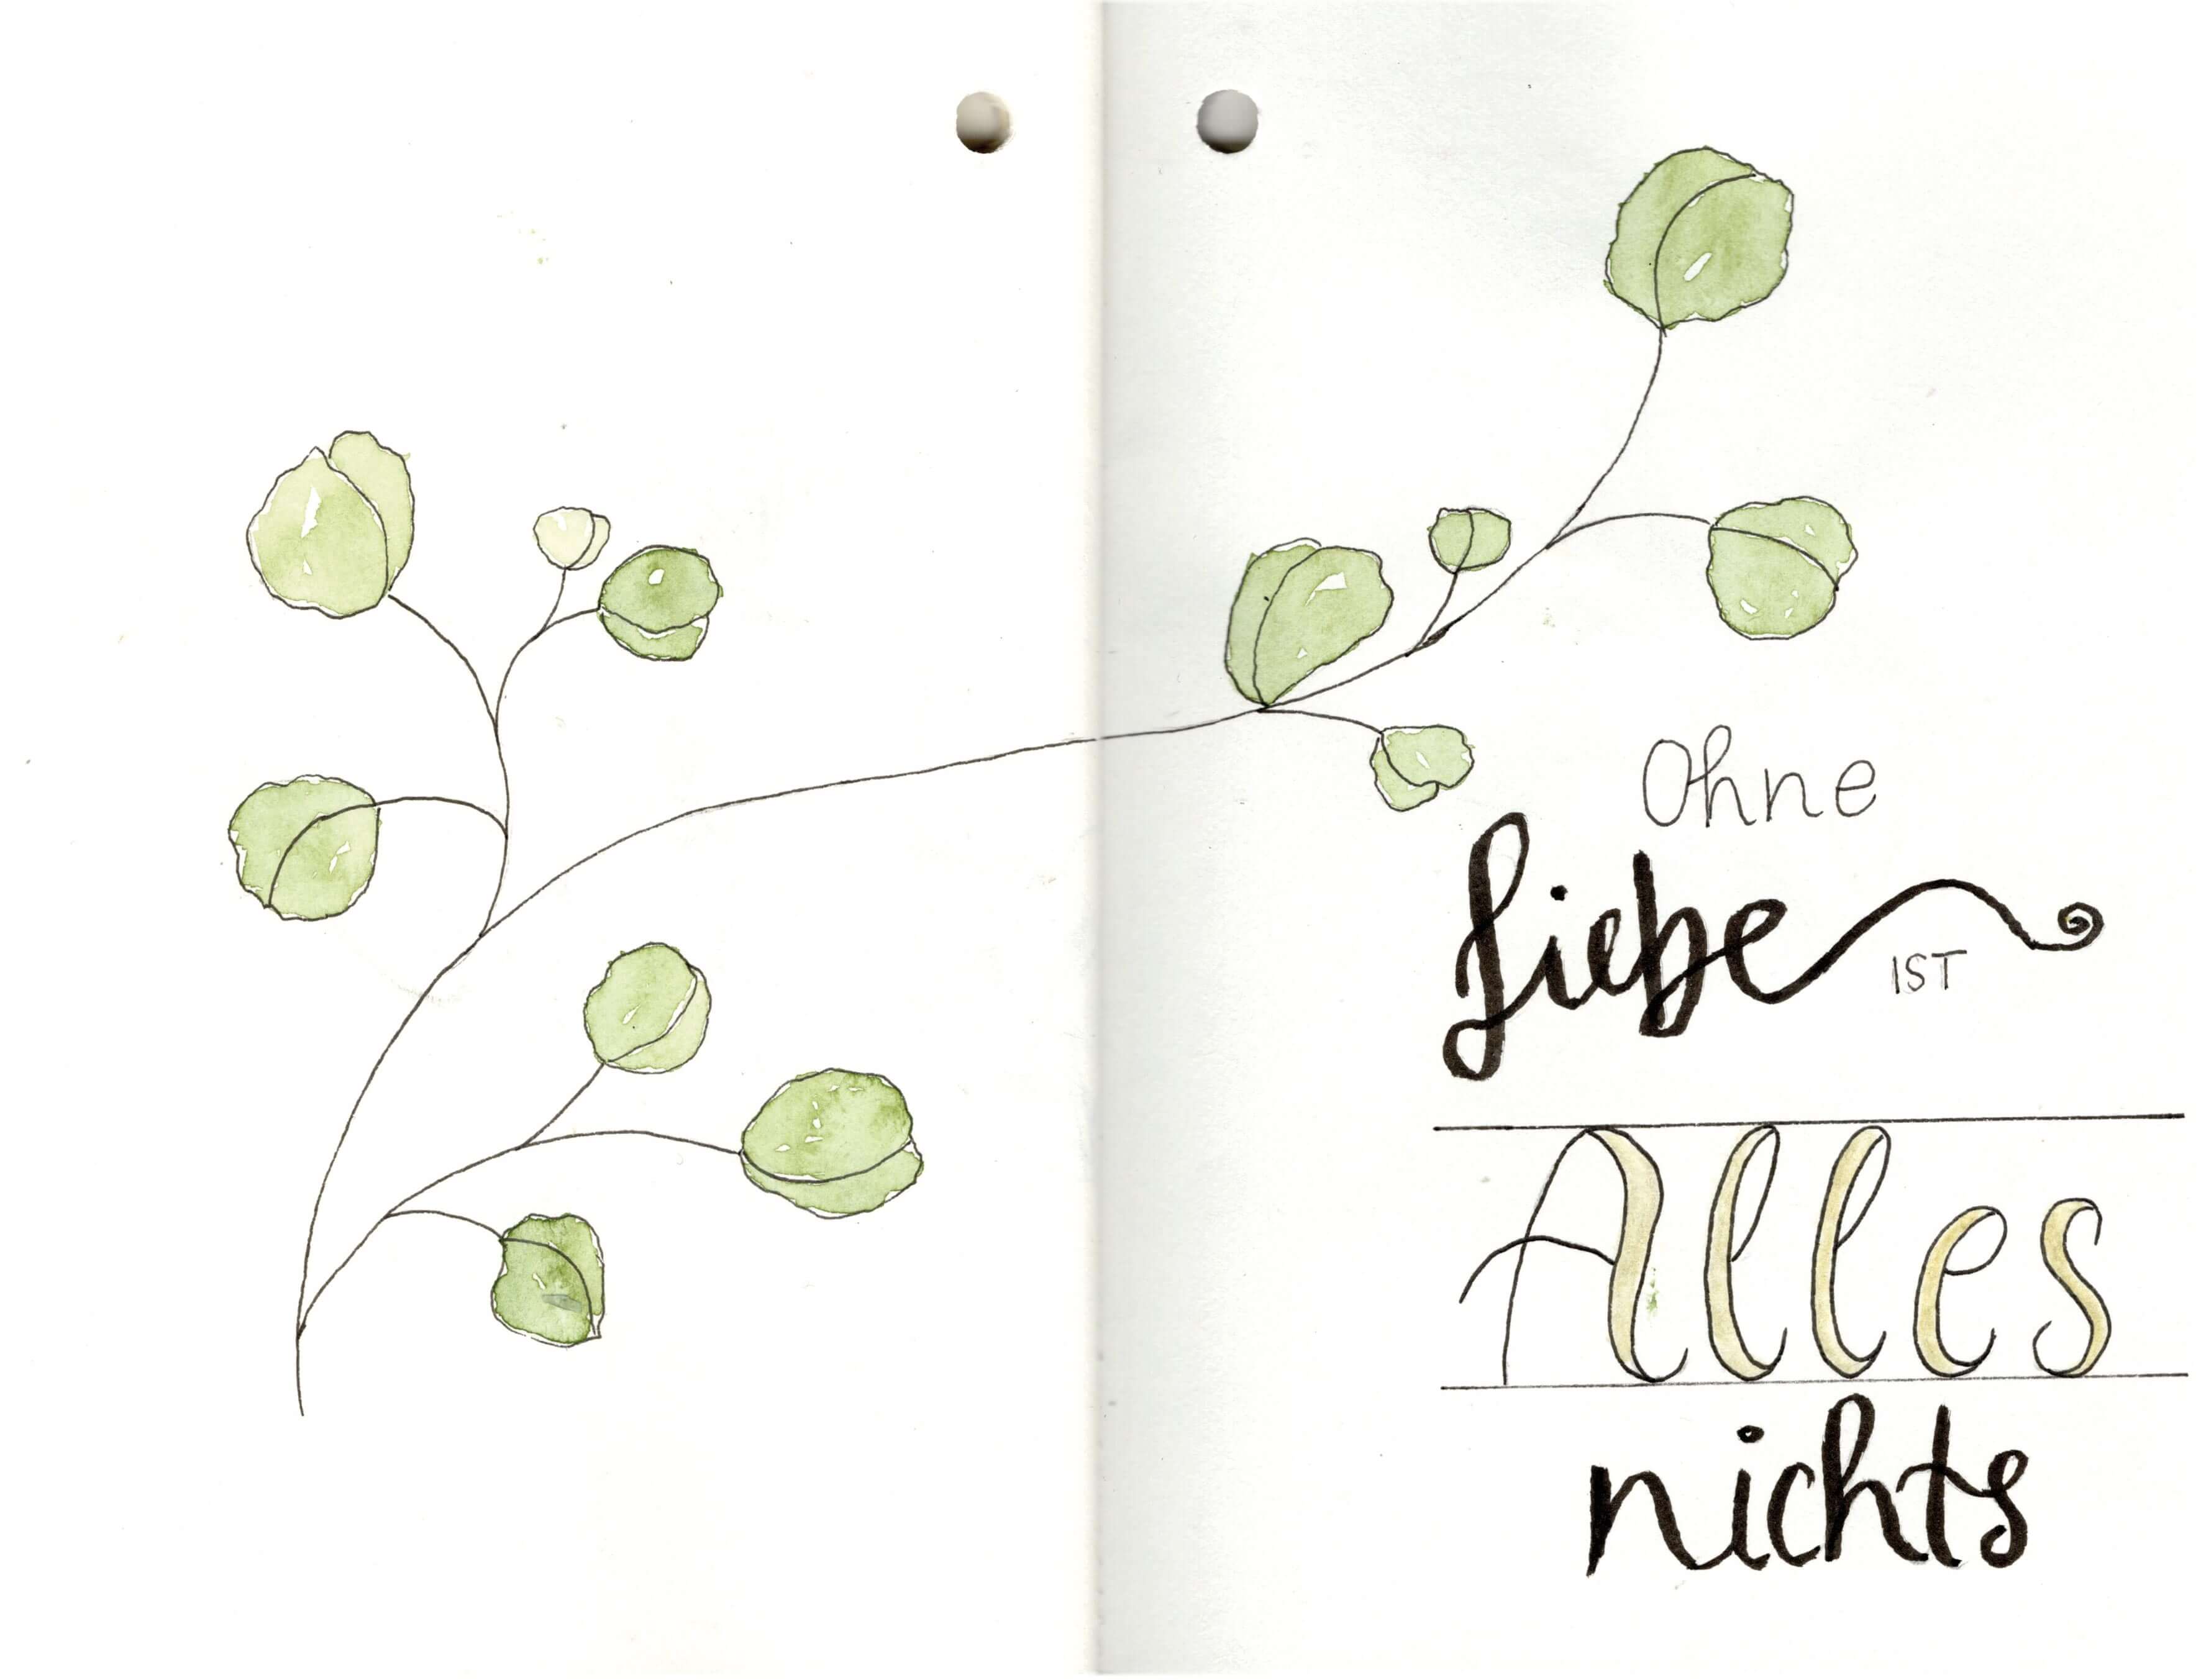 Ohne
Liebe
IST
Alles
nichts